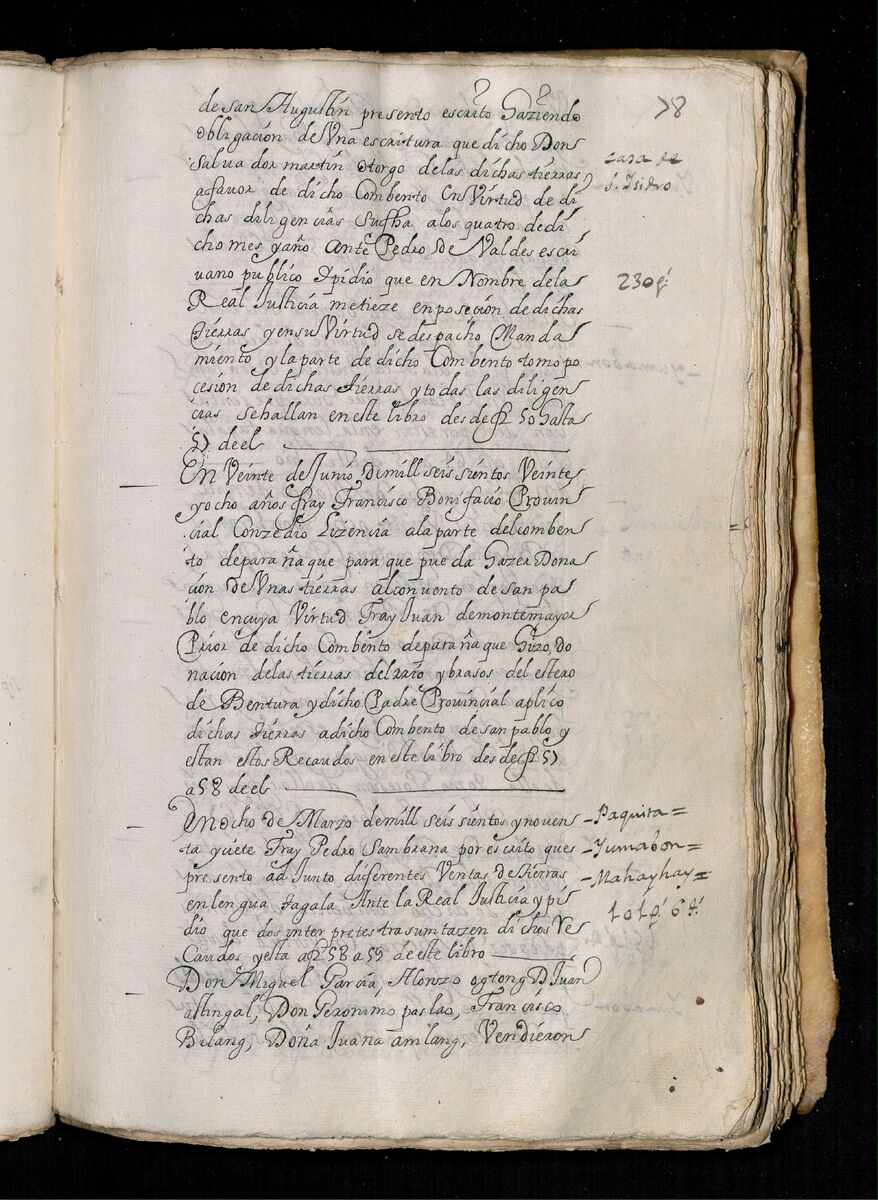 78
de san Augustin presento escrito Haziendo
obligacion de Vna escritura que dicho Don
Salua dor martin otorgo delas dichas tierras
a fauor de dicho Combento En Virtud de di
chas diligencias Su fha alos quatro dedi
cho mes y año ante Pedro De Valdes escri
uano publico Ypidio que en Nombre dela
Real Justicia metieze en poseción de dichas
tierras y ensu Virtud se despacho Manda
miento y la parte de dicho Combento tomo po
cesion de dichas tierras y todas las diligen
cias se hallan en este libro desde f 50 Hasta
57 de el
casa de
S. Isidro
230 p
En Veinte de Junio Demill seis sientos Veinte
yocho años fray Francisco Bonifacio Provin
cial Conzedio Lizencia ala parte del comben
to de parañaque para que pueda Hazer Dona
ción De Vnas tierras al conuento de san pa
blo en cuya Virtud Fray Juan de montemayor
Prior de dicho Combento de parañaque Hizo do
nacion delas tierras del rrio y brasos del estero
de Bentura y dicho Padre Provincial aplico
dichas tierras a dicho Combento de san pablo y
estan estos Recaudos en este libro desde f 57
a 58 de el
En ocho de Marzo demill seis sientos y noven
ta y ciete Fray Pedro Sambrana por escrito que
presento ad Junto diferentes Ventas de tierras
en lengua tagala Ante la Real Justicia y pi
dio que dos inter pretes trasumtazen dichos Re
Caudos y esta a f 58 a 59 de este libro
- Paquita =
- Yumabon =
- Mahayhay =
101 p 6
Don Miguel Garcia, Alonzo ogtong D Juan
atingal, Don Geronimo paslao, Francisco
Bilang, Doña Juana amlang, Vendieron